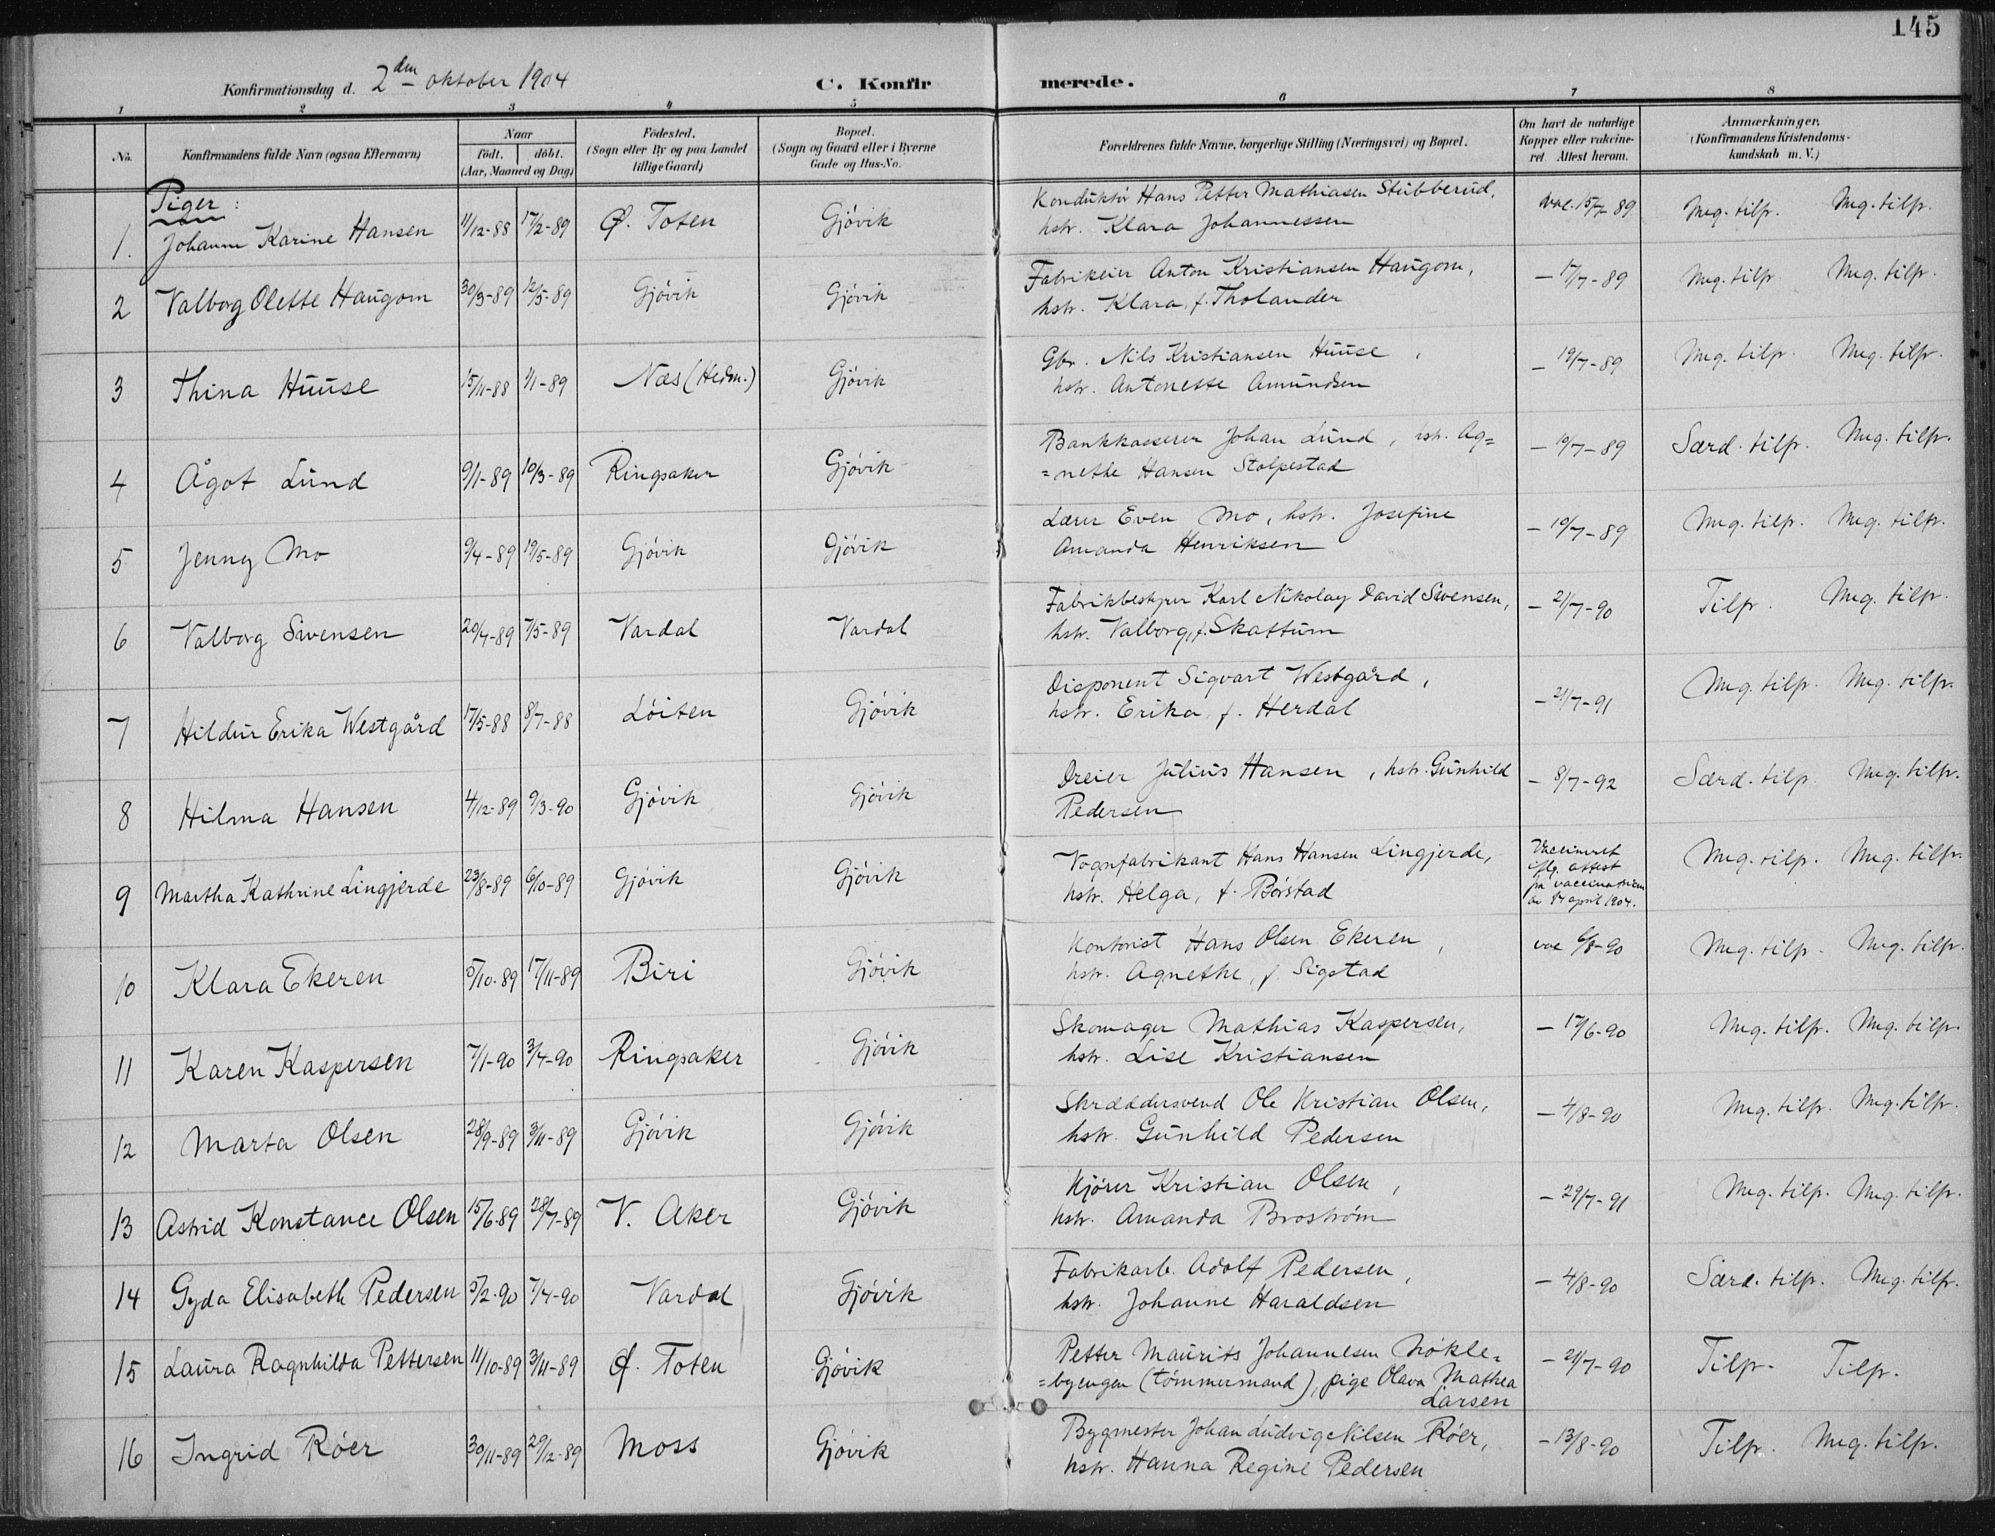 145
Konfirmationsdag d. 2den oktober 1904 C. Konfirmerede.
1 2 3 4 5 6 7 8
No. Konfirmandens fulde Navn (ogsaa Efternavn) Naar født. døbt. (Aar, Maaned og Dag) Fødested. (Sogn eller By og paa Landet tillige Gaard) Bopæl. (Sogn og Gaard eller i Byerne Gade og Hus-No. Forældrenes fulde Navne, borgerlige Stilling (Næringsvei) og Bopæl. Om havt de naturlige Kopper eller vakcineret Attest herom. Anmærkninger. (Konfirmandens Kristendomskundskab m. V.)
Piger:
1. Johanne Karine Hansen 11/12-88 17/2-89 Ø. Toten Gjøvik Konduktør Hans Petter Mathiasen Stubberud, vac. 15/7-89 Meg. tilfr. Meg. tilfr.
hstr. Klara Johannessen
2 Valborg Olette Haugom 30/3-89 12/5-89 Gjøvik Gjøvik Fabrikeier Anton Kristiansen Haugom, — 17/7-89 Meg. tilfr. Meg. tilfr.
hstr. Klara, f. Tholander
3 Thina Huuse 15/11-88 1/1-89 Næs (Hedm.) Gjøvik Gbr. Nils Kristiansen Huuse, — 19/7-89 Meg. tilfr. Meg. tilfr.
hstr. Antonette Amundsen
4 Ågot Lund 9/1-89 10/3-89 Ringsaker Gjøvik Bankkasserer Johan Lund, hstr. Ag= — 19/7-89 Særd. tilfr. Meg. tilfr.
=nethe Hansen Stolpestad
5 Jenny Mo 9/4-89 19/5-89 Gjøvik Gjøvik Lærer Even Mo, hstr. Josefine — 19/7-89 Meg. tilfr. Meg. tilfr.
Amanda Henriksen
6 Valborg Svensen 20/4-89 7/5-89 Vardal Vardal Fabrikbestyrer Karl Nikolay David Svensen, — 21/7-90 Tilfr. Meg. tilfr.
hstr. Valborg, f. Skattum
7 Hildur Erika Westgård 17/5-88 8/7-88 Løiten Gjøvik Disponent Sigvart Westgård, — 21/7-91 Meg. tilfr. Meg. tilfr.
hstr. Erika, f. Herdal
8 Hilma Hansen 4/12-89 9/3-90 Gjøvik Gjøvik Dreier Julius Hansen, hstr. Gunhild — 8/7-92 Særd. tilfr. Meg. tilfr.
Pedersen
9 Martha Kathrine Lingjerde 23/8-89 6/10-89 Gjøvik Gjøvik Vognfabrikant Hans Hansen Lingjerde, Vaccineret iflg. attest Meg. tilfr. Meg. tilfr.
hstr. Helga, f. Børstad april 1904.
10 Klara Ekeren 5/10-89 17/11-89 Biri Gjøvik Kontorist Hans Olsen Ekeren, vac 6/8-90 Meg. tilfr. Meg. tilfr.
hstr. Agnethe, f. Sigstad
11 Karen Kaspersen 7/1-90 3/4-90 Ringsaker Gjøvik Skomager Mathias Kaspersen, — 17/6-90 Meg. tilfr. Meg. tilfr.
hstr. Lise Kristiansen
12 Marta Olsen 28/9-89 3/11-89 Gjøvik Gjøvik Skræddersvend Ole Kristian Olsen, — 4/8-90 Meg. tilfr. Meg. tilfr.
hstr. Gunhild Pedersen
13 Astrid Konstance Olsen 15/6-89 28/7-89 V. Aker Gjøvik Kjører Kristian Olsen, — 29/7-91 Meg. tilfr. Meg. tilfr.
hstr. Amanda Broström
14 Gyda Elisabeth Pedersen 5/2-90 7/4-90 Vardal Gjøvik Fabrikarb. Adolf Pedersen, — 4/8-90 Særd. tilfr. Meg. tilfr.
hstr. Johanne Haraldsen
15 Laura Ragnhilda Pettersen 11/10-89 3/11-89 Ø. Toten Gjøvik Petter Maurits Johannesen Nøkle= — 21/7-90 Tilfr. Tilfr.
=byengen (tømmermand), pige Olava Mathea
Larsen
16 Ingrid Røer 30/11-89 29/12-89 Moss Gjøvik Bygmester Johan Ludvig Nilsen Røer, — 13/8-90 Tilfr. Meg. tilfr.
hstr. Hanna Regine Pedersen